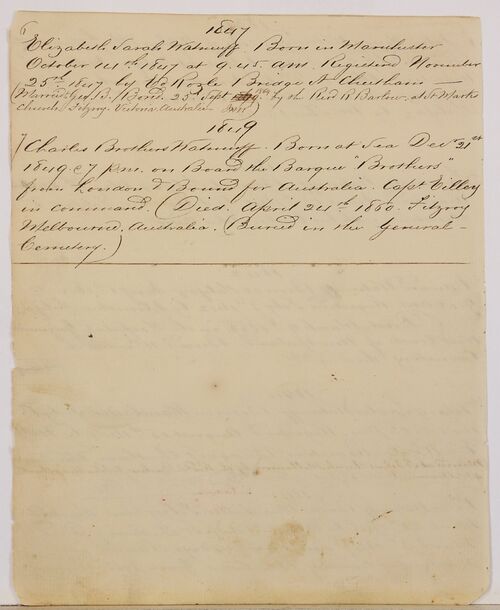 1847
6 Elizabeth Sarah Watmuff. Born in Manchester
October 14th 1847 at 9.45. am. Registered November
25th 1847 by Poole Bridge St Cheetham
(Married to Geo. B. Bond. 25th Sept by the Revd R Barlow. at St Marks
Church. Fitzroy. Victoria. Australia
1849
7 Charles Brothers Watmuff. Born at Sea Decr 21st
1849. @ 7 p.m. on Board the Barque "Brothers"
from London & Bound for Australia. Capt Tilley
in command. (Died. April 24th 1860. Fitzroy
Melbourne. Australia. (Buried in the General-
Cemetery.)